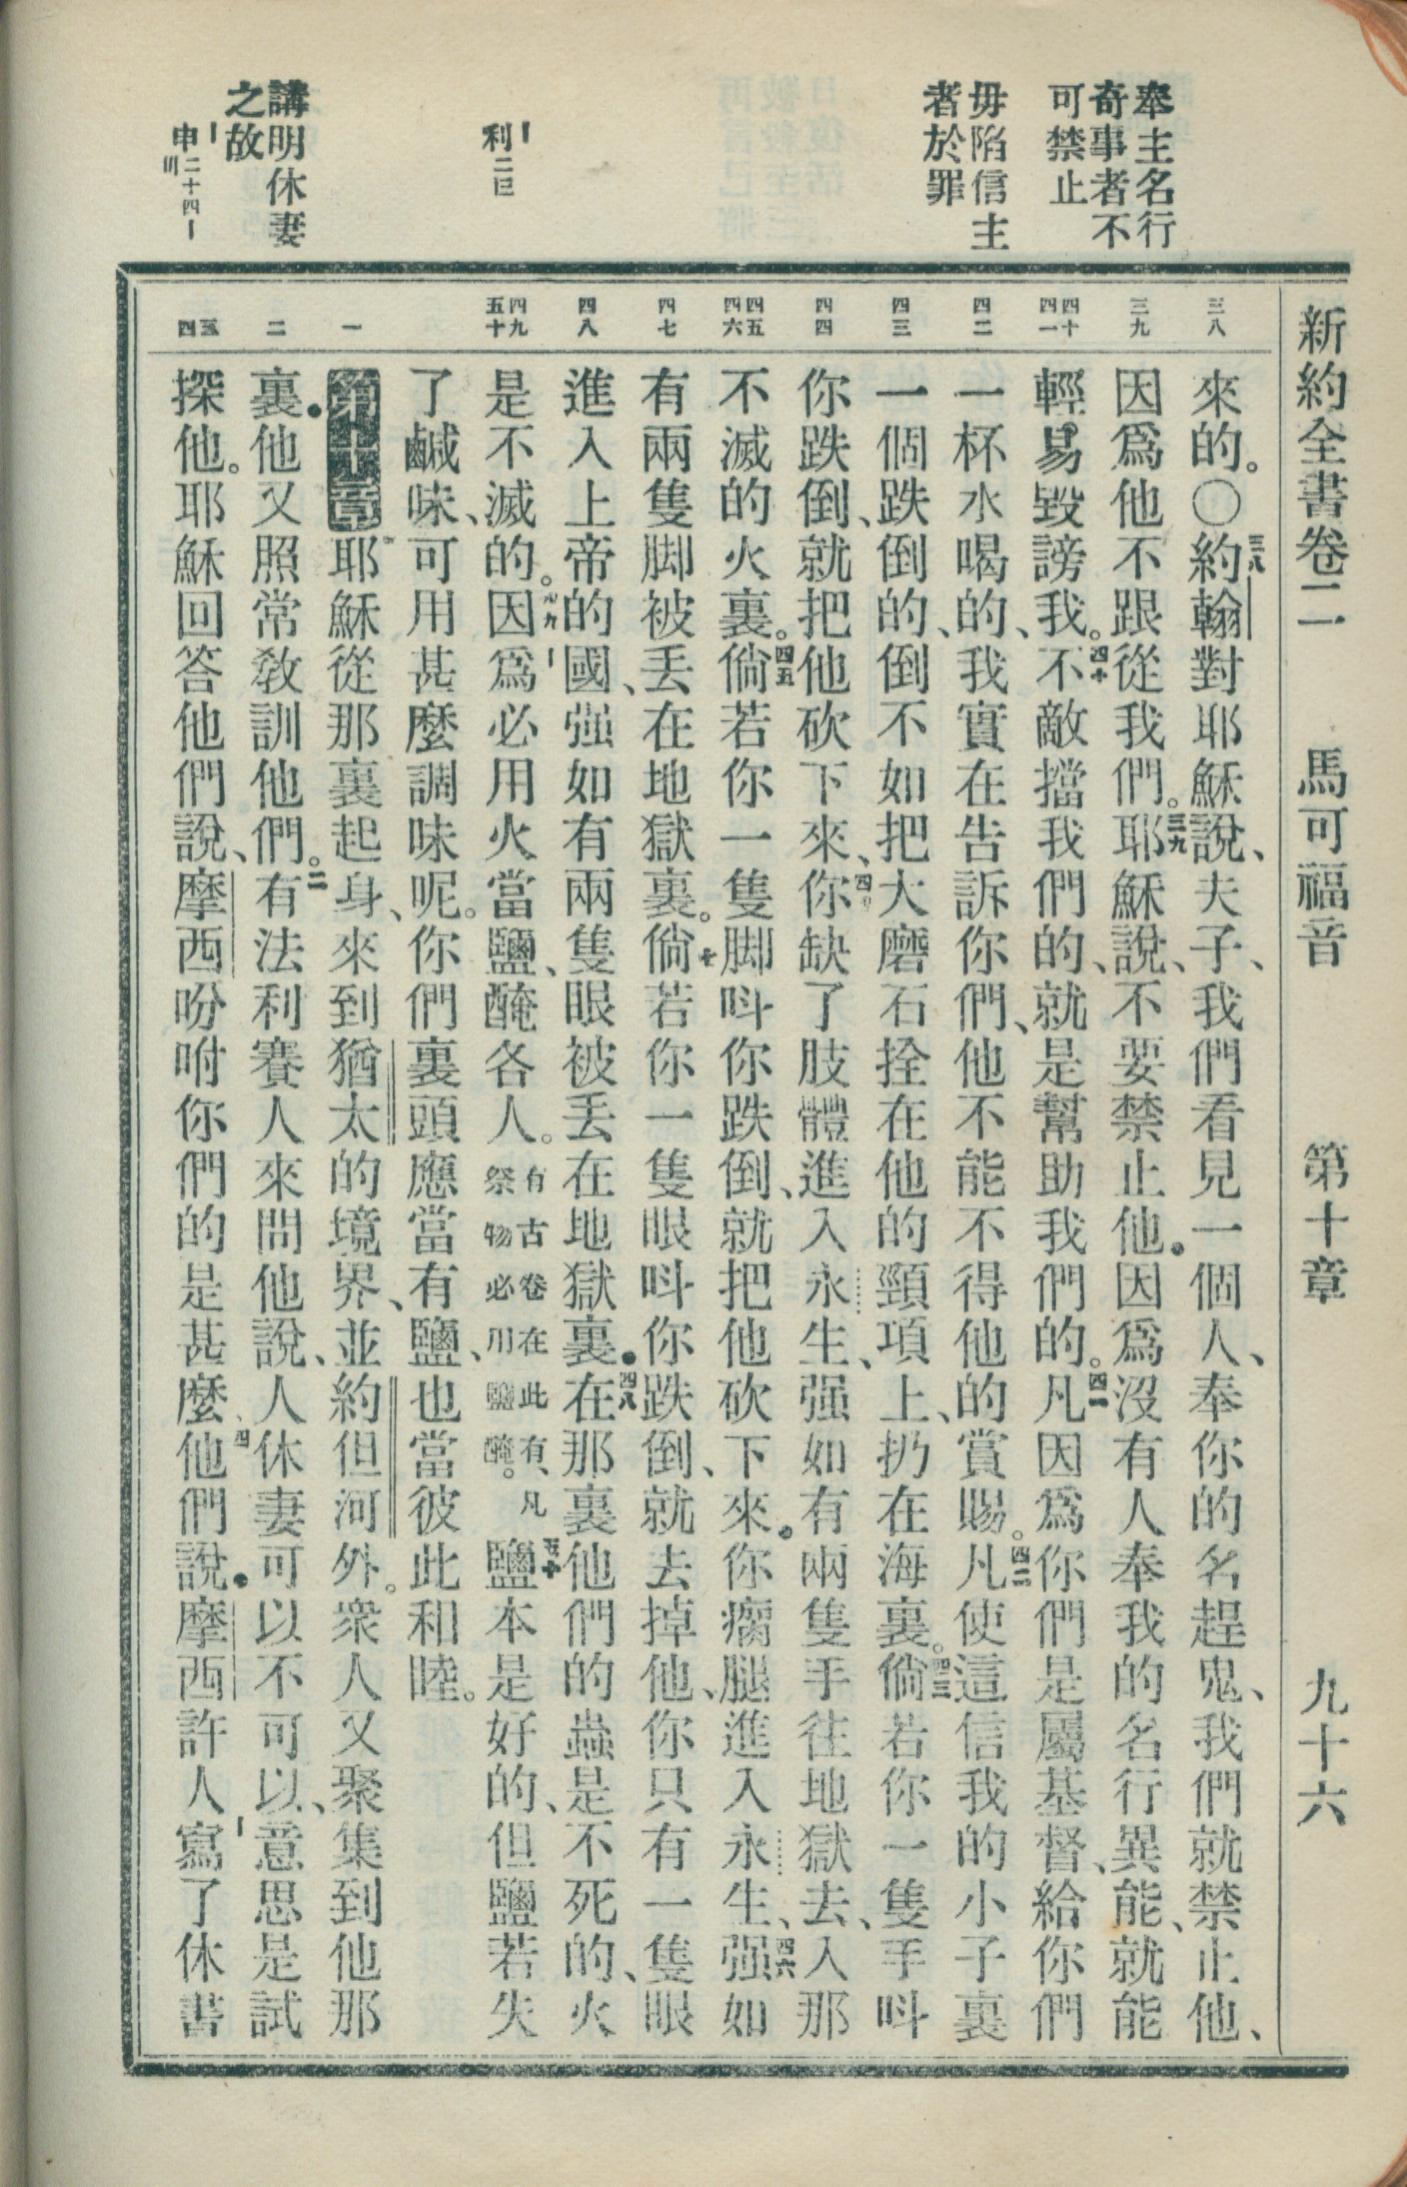 新約全書卷二　馬可福音　第十章　九十六
奉主名行
奇事者不
可禁止
毋陷信主
者於罪
利二
講明休妻
之故
申二十四
三八
三九
四十
四一
四二
四三
四四
四五
四六
四七
四八
四九
五十
一
二
三
四
來的。○三八約翰對耶穌說、夫子、我們看見一個人、奉你的名趕鬼、我們就禁止他、
因爲他不跟從我們。三九耶穌說、不要禁止他。因爲沒有人奉我的名行異能、就能
輕易毀謗我。四十不敵擋我們的、就是幫助我們的。四一凡因爲你們是屬基督、給你們
一杯水喝的、我實在告訴你們、他不能不得他的賞賜。四二凡使這信我的小子裏
一個跌倒的、倒不如把大磨石拴在他的頸項上、扔在海裏。四三倘若你一隻手呌
你跌倒、就把他砍下來、你缺了肢體進入永生、强如有兩隻手往地獄去、入那
不滅的火裏。四五倘若你一隻脚呌你跌倒、就把他砍下來。你瘸腿進入永生、四六强如
有兩隻脚被丟在地獄裏。七倘若你一隻眼呌你跌倒、就去掉他、你只有一隻眼
進入上帝的國、强如有兩隻眼被丟在地獄裏。四八在那裏他們的蟲是不死的、火
是不滅的。四九因爲必用火當鹽、醃各人。有古卷在此有、凡祭物必用鹽醃。五十鹽本是好的、但鹽若失
了鹹味、可用甚麼調味呢。你們裏頭應當有鹽、也當彼此和睦。
第十章耶穌從那裏起身、來到猶太的境界、並約但河外。衆人又聚集到他那
裏。他又照常敎訓他們。二有法利賽人來問他說、人休妻可以不可以、意思是試
探他。耶穌回答他們說、摩西吩咐你們的是甚麼、四他們說。摩西許人寫了休書